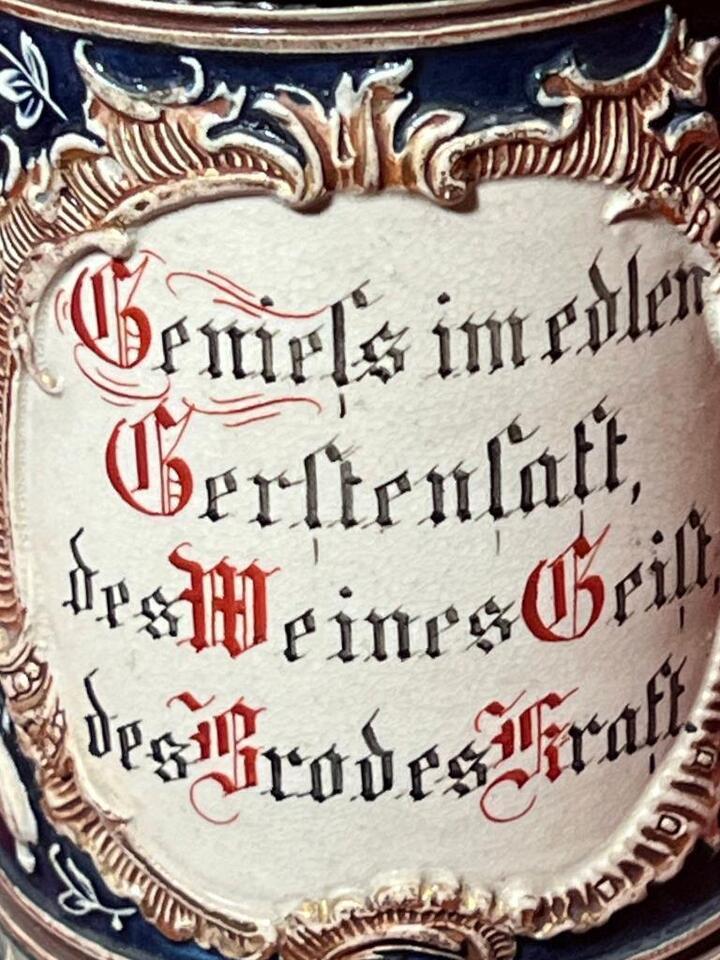 Genieſs im edlen
Gerſtenſaft,
des Weines Geiſt,
des Brodes Kraft.